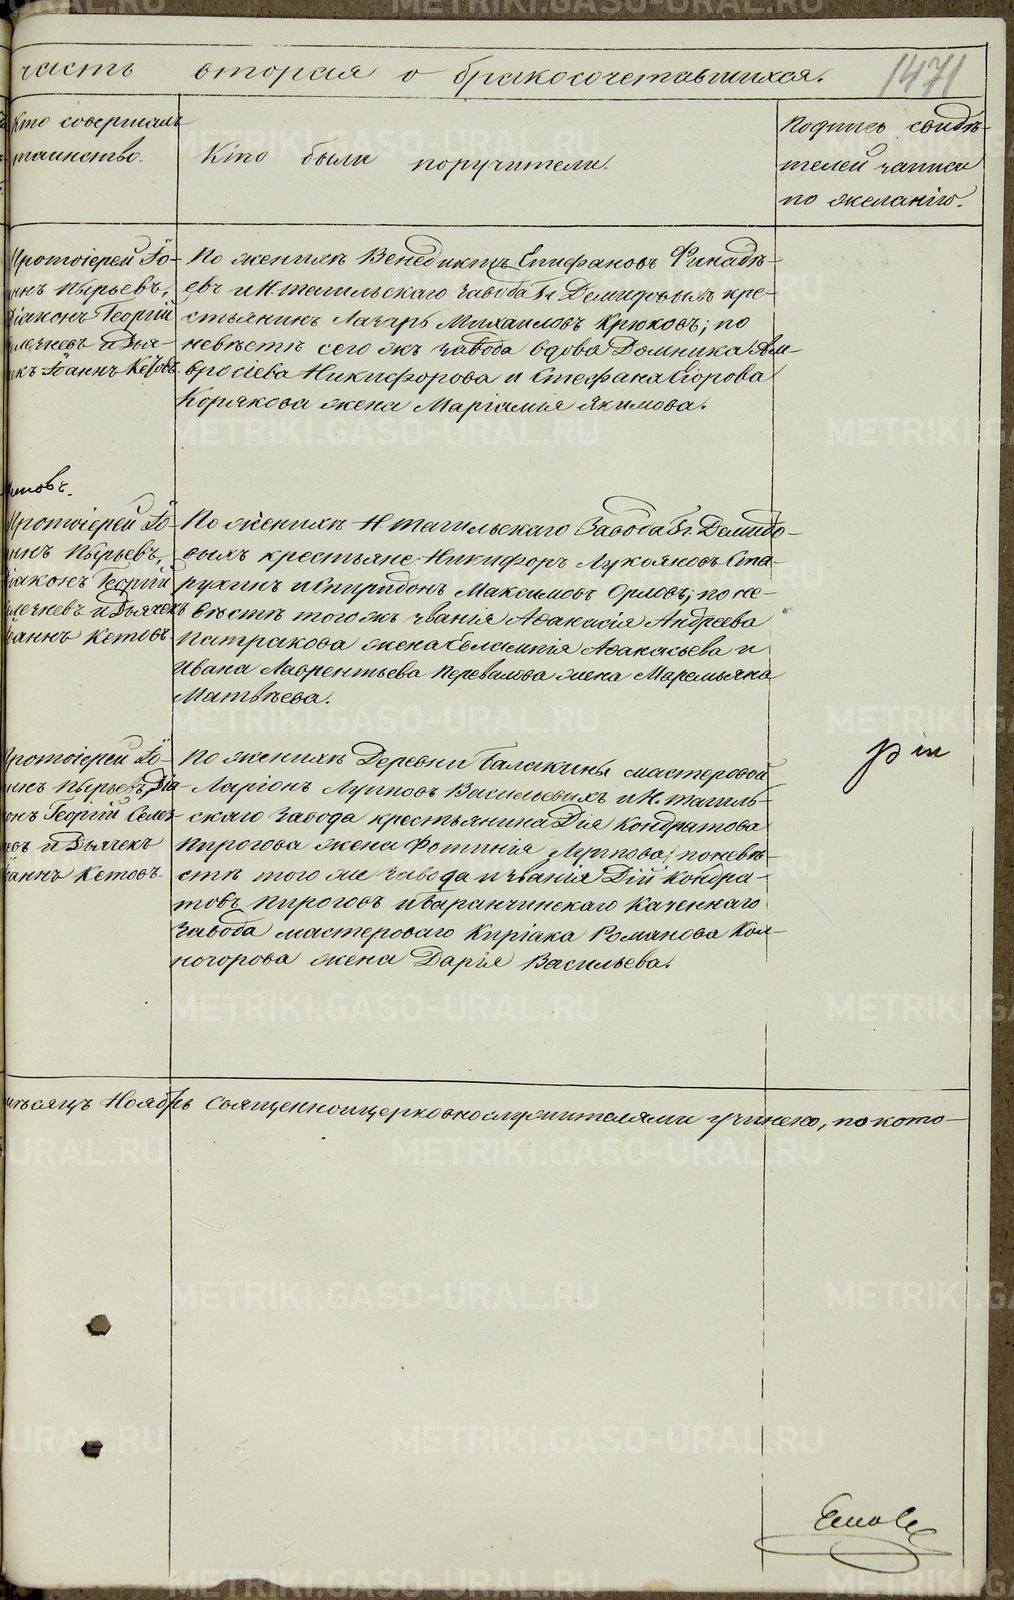 METRIKI.GASO-URAL.RU
часть вторая о бракосочетавшихся. 1471
Кто совершалъ
таинство.
Кто были поручители.
Подпись свидѣ-
телей записи
по желанію.
Протоіерей Іо-
аннъ Пырьевъ,
Діаконъ Георгій
Селезневъ и Дья-
чекъ Іоаннъ Кетовъ
По женихѣ Венедиктъ Епифановъ Финадѣ-
евъ и Н. тагильскаго завода Гг Демидовыхъ кре-
стьянинъ Лазарь Михаиловъ Крюковъ; по
невѣстѣ сего жъ завода вдова Домника Ам-
вросіева Никифорова и Стефана Егорова
Корякова жена Маріамія Якимова.
Протоіерей Іо-
аннъ Пырьевъ,
Діаконъ Георгій
Селезневъ и Дьячекъ
Іоаннъ Кетовъ
По женихѣ Н. тагильскаго Завода Гг. Демидо-
выхъ крестьяне: Никифоръ Лукояновъ Ста-
рухинъ и Спиридонъ Максимовъ Орловъ; по не-
вѣстѣ того жъ званія Аѳанасія Андреева
Патракова жена Евлампія Аѳанасьева и
Ивана Лаврентьева Перевалова жена Маремьяна
Матвѣева.
Протоіерей Іо-
аннъ Пырьевъ, Діа-
конъ Георгій Селез-
невъ и Дьячекъ
Іоаннъ Кетовъ.
По женихѣ Деревни Балакины мастеровой
Ларіонъ Лупповъ Васильевыхъ и Н. тагиль-
скаго завода крестьянина Дія Кондратова
Пирогова жена Фотинія Луппова; по невѣ-
стѣ того же завода и званія Дій Кондра-
товъ Пироговъ и Баранчинскаго Казеннаго
завода мастероваго Киріака Романова Кол-
ногорова жена Дарія Васильева.
мѣсяцъ Ноябрь Священноицерковнослужителями учинено, по кото-